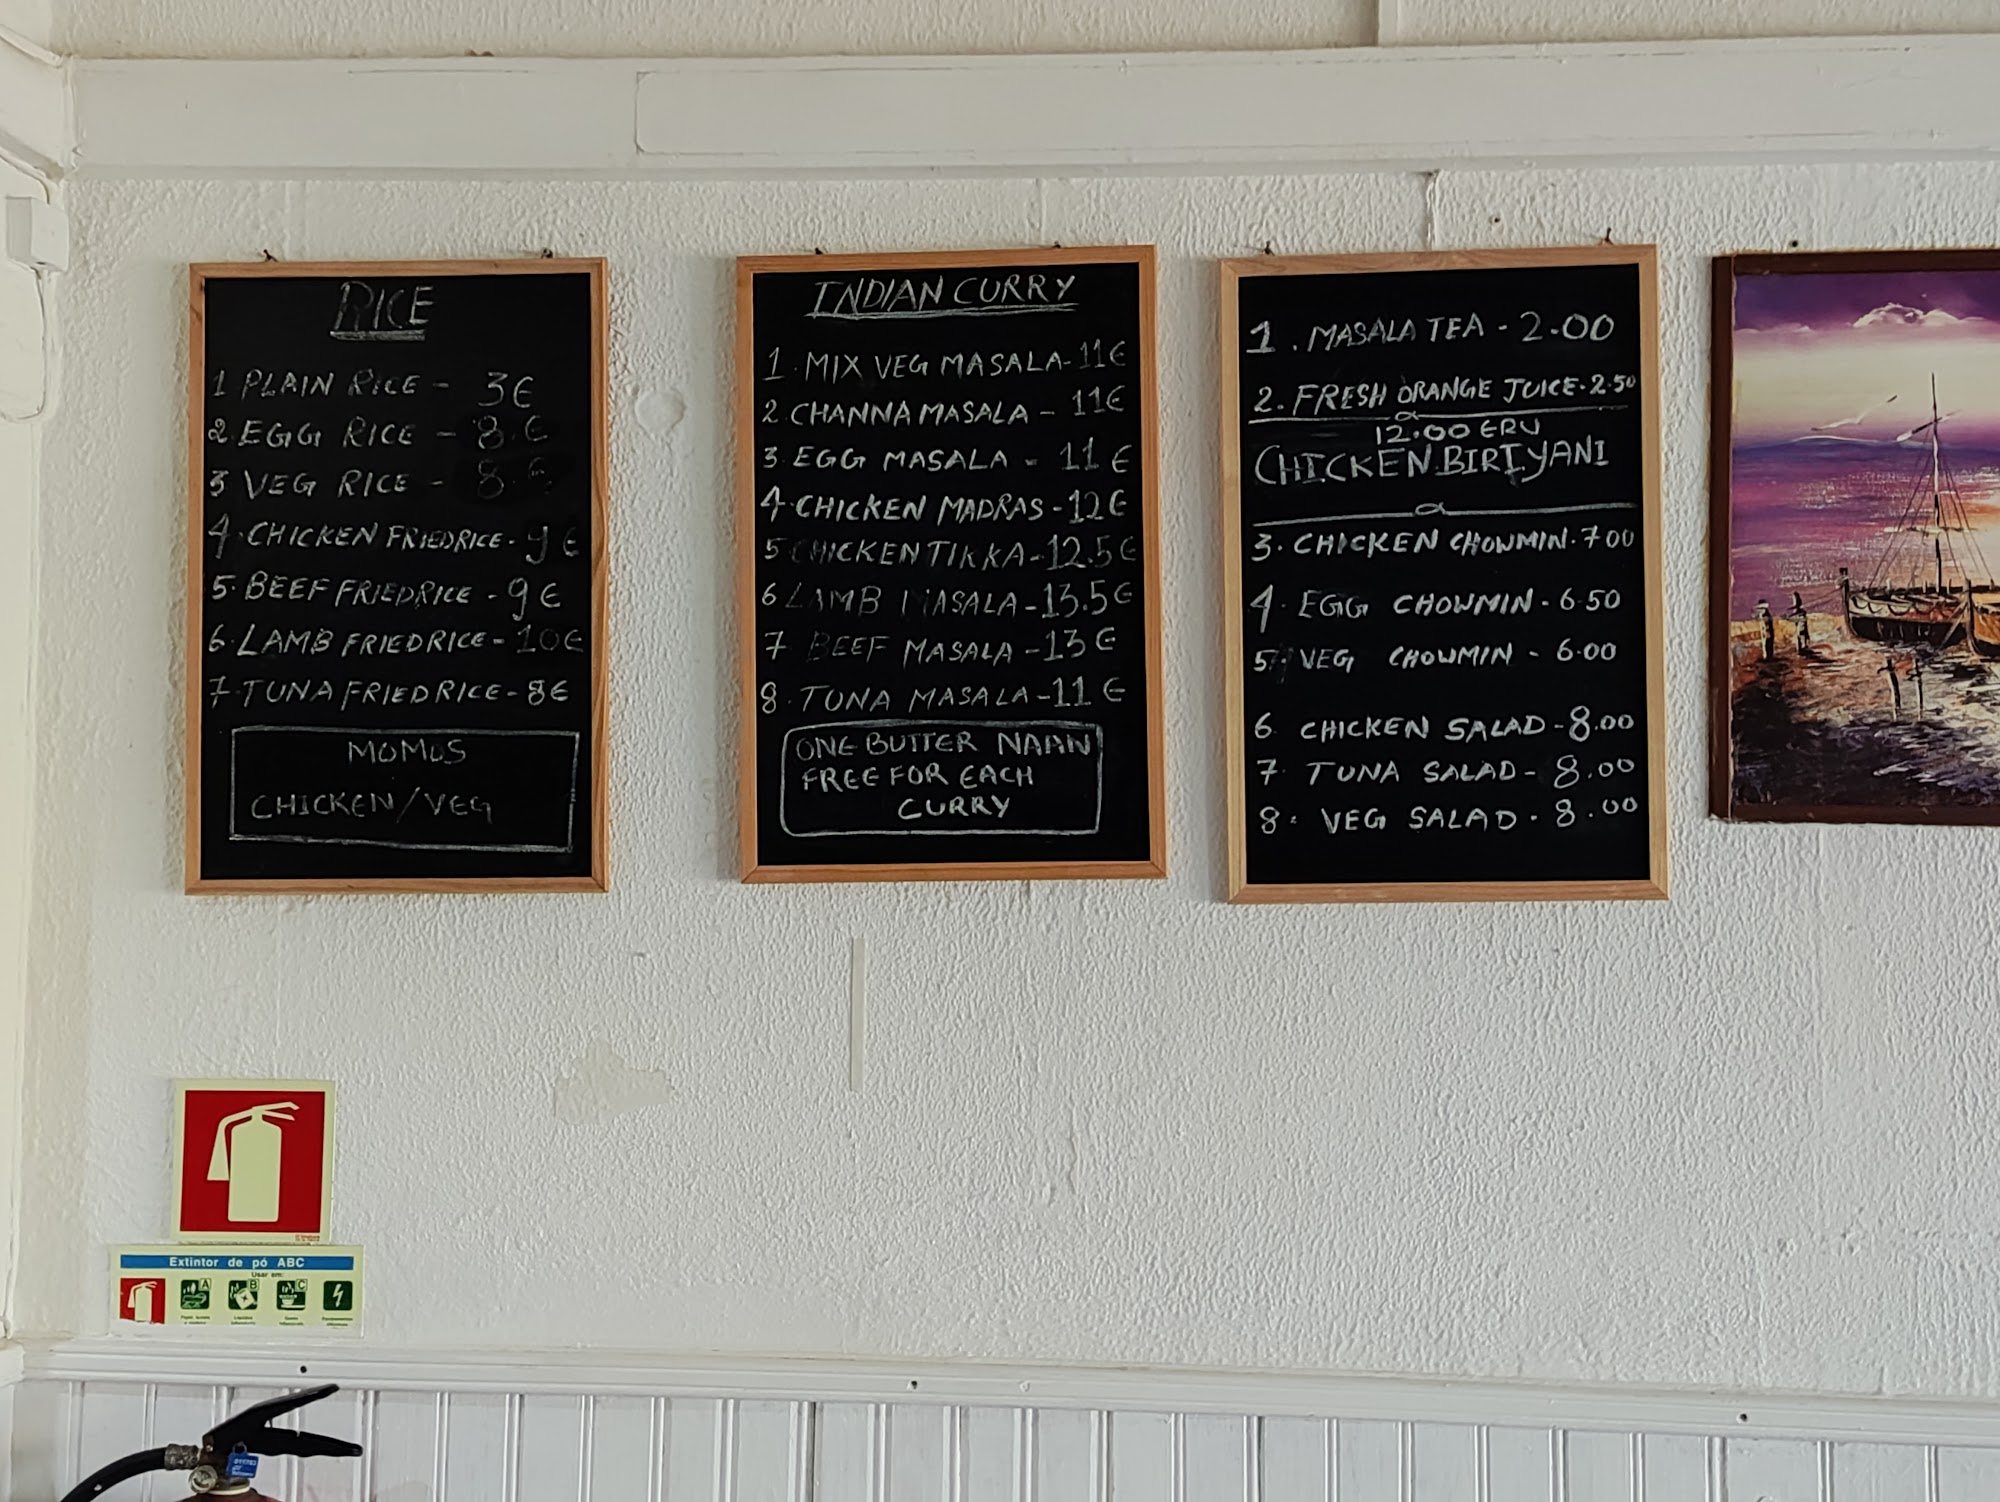 RICE
1 PLAIN RICE - 3€
2. EGG RICE - 8.€
3 VEG RICE - 8.€
4. CHICKEN FRIEDRICE. 9 €
5. BEEF FRIEDRICE - 9€
6. LAMB FRIEDRICE - 10€
7. TUNA FRIED RICE - 8€
MOMOS
CHICKEN/VEG
INDIAN CURRY
1. MIX VEG MASALA - 11€
2. CHANNA MASALA - 11€
3. EGG MASALA - 11€
4. CHICKEN MADRAS - 12€
5 CHICKEN TIKKA - 12.5€
6 LAMB MASALA - 13.5€
7 BEEF MASALA - 13€
8. TUNA MASALA - 11€
ONE BUTTER NAAN
FREE FOR EACH
CURRY
1. MASALA TEA - 2.00
2. FRESH ORANGE JUICE. 2.50
12.00 ERU
CHICKEN BIRIYANI
3. CHICKEN CHOWMIN. 7 00
4. EGG CHOWMIN - 6.50
5. VEG CHOWMIN - 6.00
6 CHICKEN SALAD - 8.00
7. TUNA SALAD - 8.00
8. VEG SALAD. 8.00
Extintor de pó ABC
Usar em:
A B C